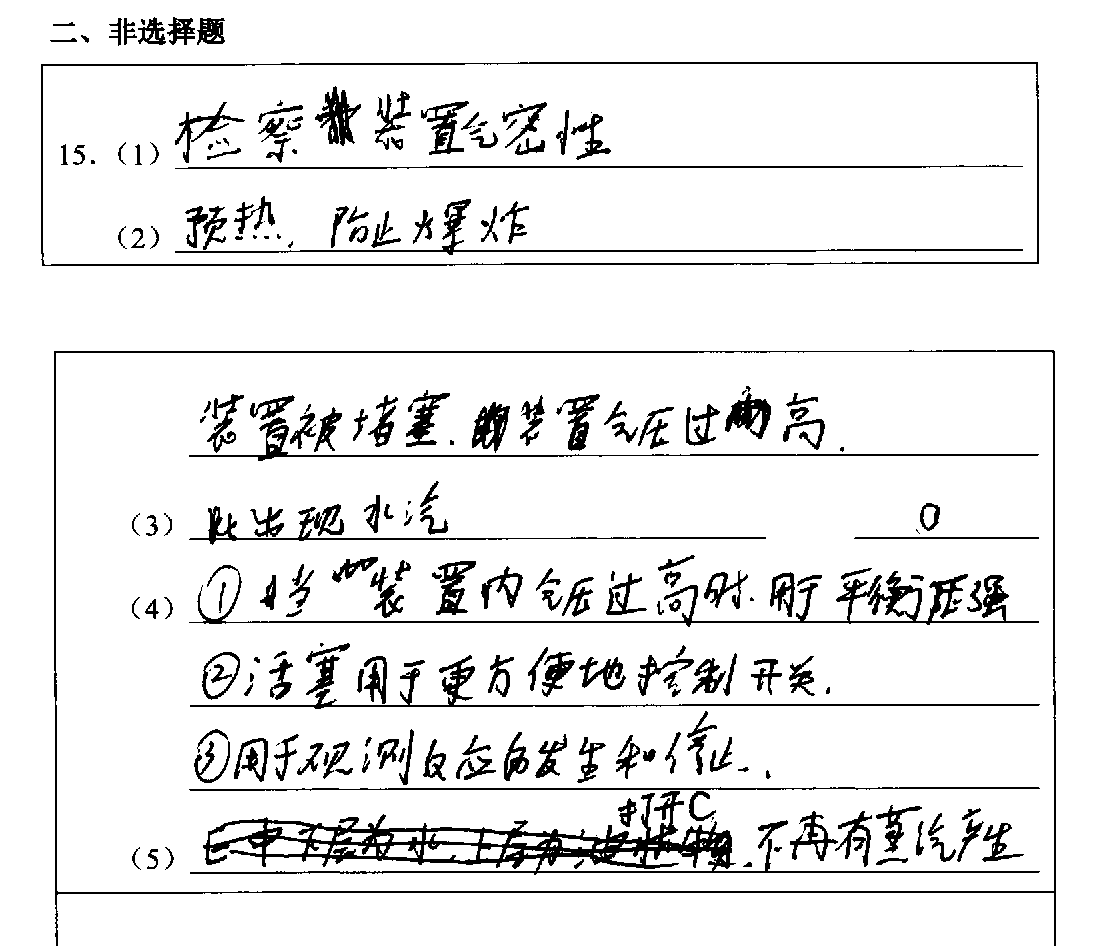 二、非选择题
15.（1）检察装置气密性
（2）预热，防止爆炸
装置被堵塞，装置气压过高．
（3）出现水汽 0
（4）①当装置内气压过高时，用于平衡压强
②活塞用于更方便地控制开关．
③用于观测反应的发生和停止．
打开C
（5）E中下层为水，上层为油状物．不再有蒸汽产生